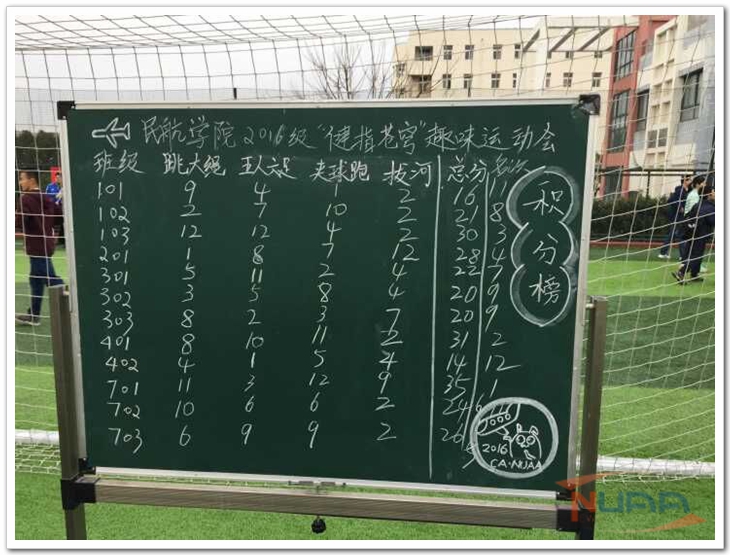 民航学院2016级"健指苍穹"趣味运动会
班级 跳大绳 五人六足 夹球跑 拔河 总分 名次
101 9 4 1 2 16 11
102 2 7 10 2 21 8
103 12 12 4 2 30 3
201 1 8 7 12 28 4
301 5 11 2 4 22 7
302 3 5 8 4 20 9
303 8 2 3 7 20 9
401 8 10 11 2 31 2
402 4 1 5 4 14 12
701 11 3 12 9 35 1
702 10 6 6 2 24 6
703 6 9 9 2 26 5
积
分
榜
2016
CA·NUAA
NUAA